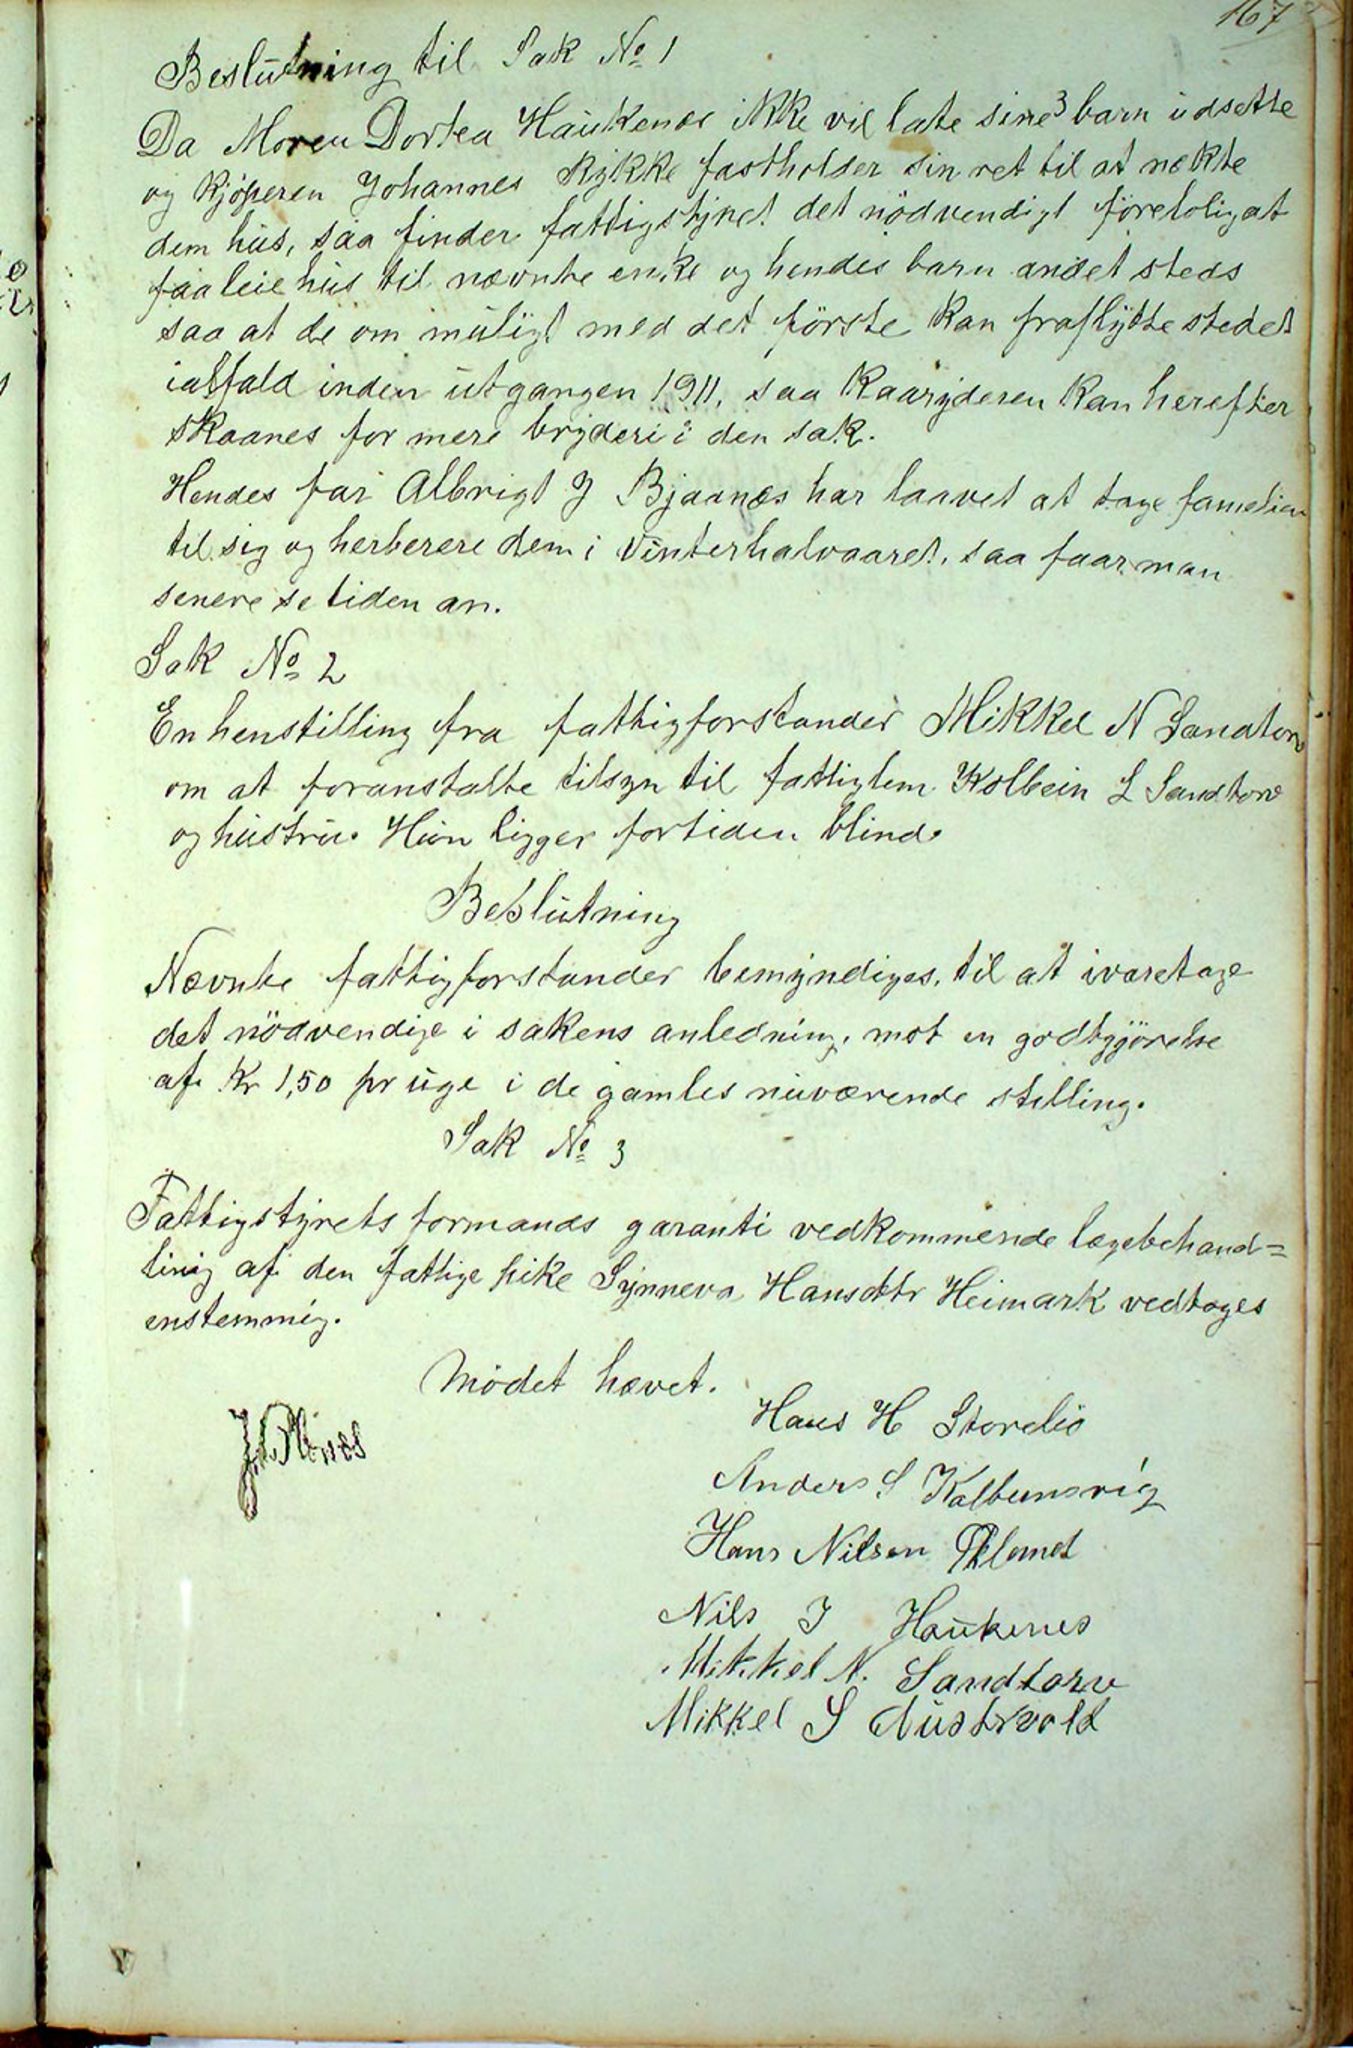 167
Beslutning til Sak No 1
Da Moren Dortea Haukenæs ikke vil late sine 3 barn udsette
og kjøperen Johannes Rykke fastholder sin ret til at nekte
dem hus, saa finder fattigstyret det nödvendigt föreløbig at
faa leie hus til nævnte enke og hendes barn andet steds
saa at de om muligt med det förste kan fraflytte stedet
ialfald inden utgangen 1911, saa Kaaryderen kan herefter
skaanes for mere bryderi i den sak.
Hendes far Albrigt J Bjaanæs har laavet at tage familien
til sig og herberere dem i Vinterhalvaaret, saa faar man
senere se tiden an.
Sak No 2
En henstilling fra fattigforstander Mikkel N Sandtorv
om at foranstalte tilsyn til fattiglem Kolbein L Sandtorv
og hustru. Hun ligger fortiden blind.
Beslutning
Nævnte fattigforstander bemyndiges, til at ivaretage
det nödvendige i sakens anledning, mot en godtgjörelse
af Kr 1,50 pr uge i de gamles nuværende stilling.
Sak No 3
Fattigstyrets formands garanti vedkommende lægebehand=
ling af den fattige pike Synneva Hansdtr Heimark vedtages
enstemmig.
Mödet hævet.
Hans H Storelio
Anders S Kalbunsvig
Hans Nilsen
Nils J Haukenes
Mikkel N. Sandtorv
Mikkel S Austrvold